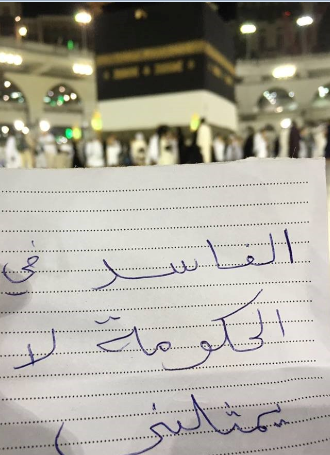 الفاسد في
الحكومة لا
يمثلني )